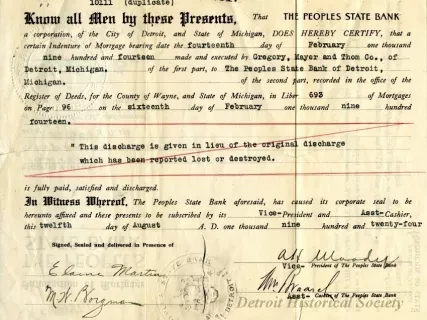 10111 (duplicate)
Know all Men by these Presents, That THE PEOPLES STATE BANK
a corporation, of the City of Detroit, and State of Michigan, DOES HEREBY CERTIFY, that
a certain Indenture of Mortgage bearing date the fourteenth day of February one thousand
nine hundred and fourteen made and executed by Gregory, Mayer and Thom Co., of
Detroit, Michigan. of the first part, to The Peoples State Bank of Detroit,
Michigan. of the second part, recorded in the office of the
Register of Deeds, for the County of Wayne, and State of Michigan, in Liber 693 of Mortgages
on Page 96 on the sixteenth day of February one thousand nine hundred
fourteen.
"This discharge is given in lieu of the original discharge
which has been reported lost or destroyed.
is fully paid, satisfied and discharged.
In Witness Whereof, The Peoples State Bank aforesaid, has caused its corporate seal to be
hereunto affixed and these presents to be subscribed by its Vice-President and Asst-Cashier,
this twelfth day of August A. D. one thousand nine hundred and twenty-four
Signed, Sealed and delivered in Presence of
Elaine Martin
Vice- President of The Peoples State Bank
Asst- Cashier of The Peoples State Bank
Detroit Historical Society